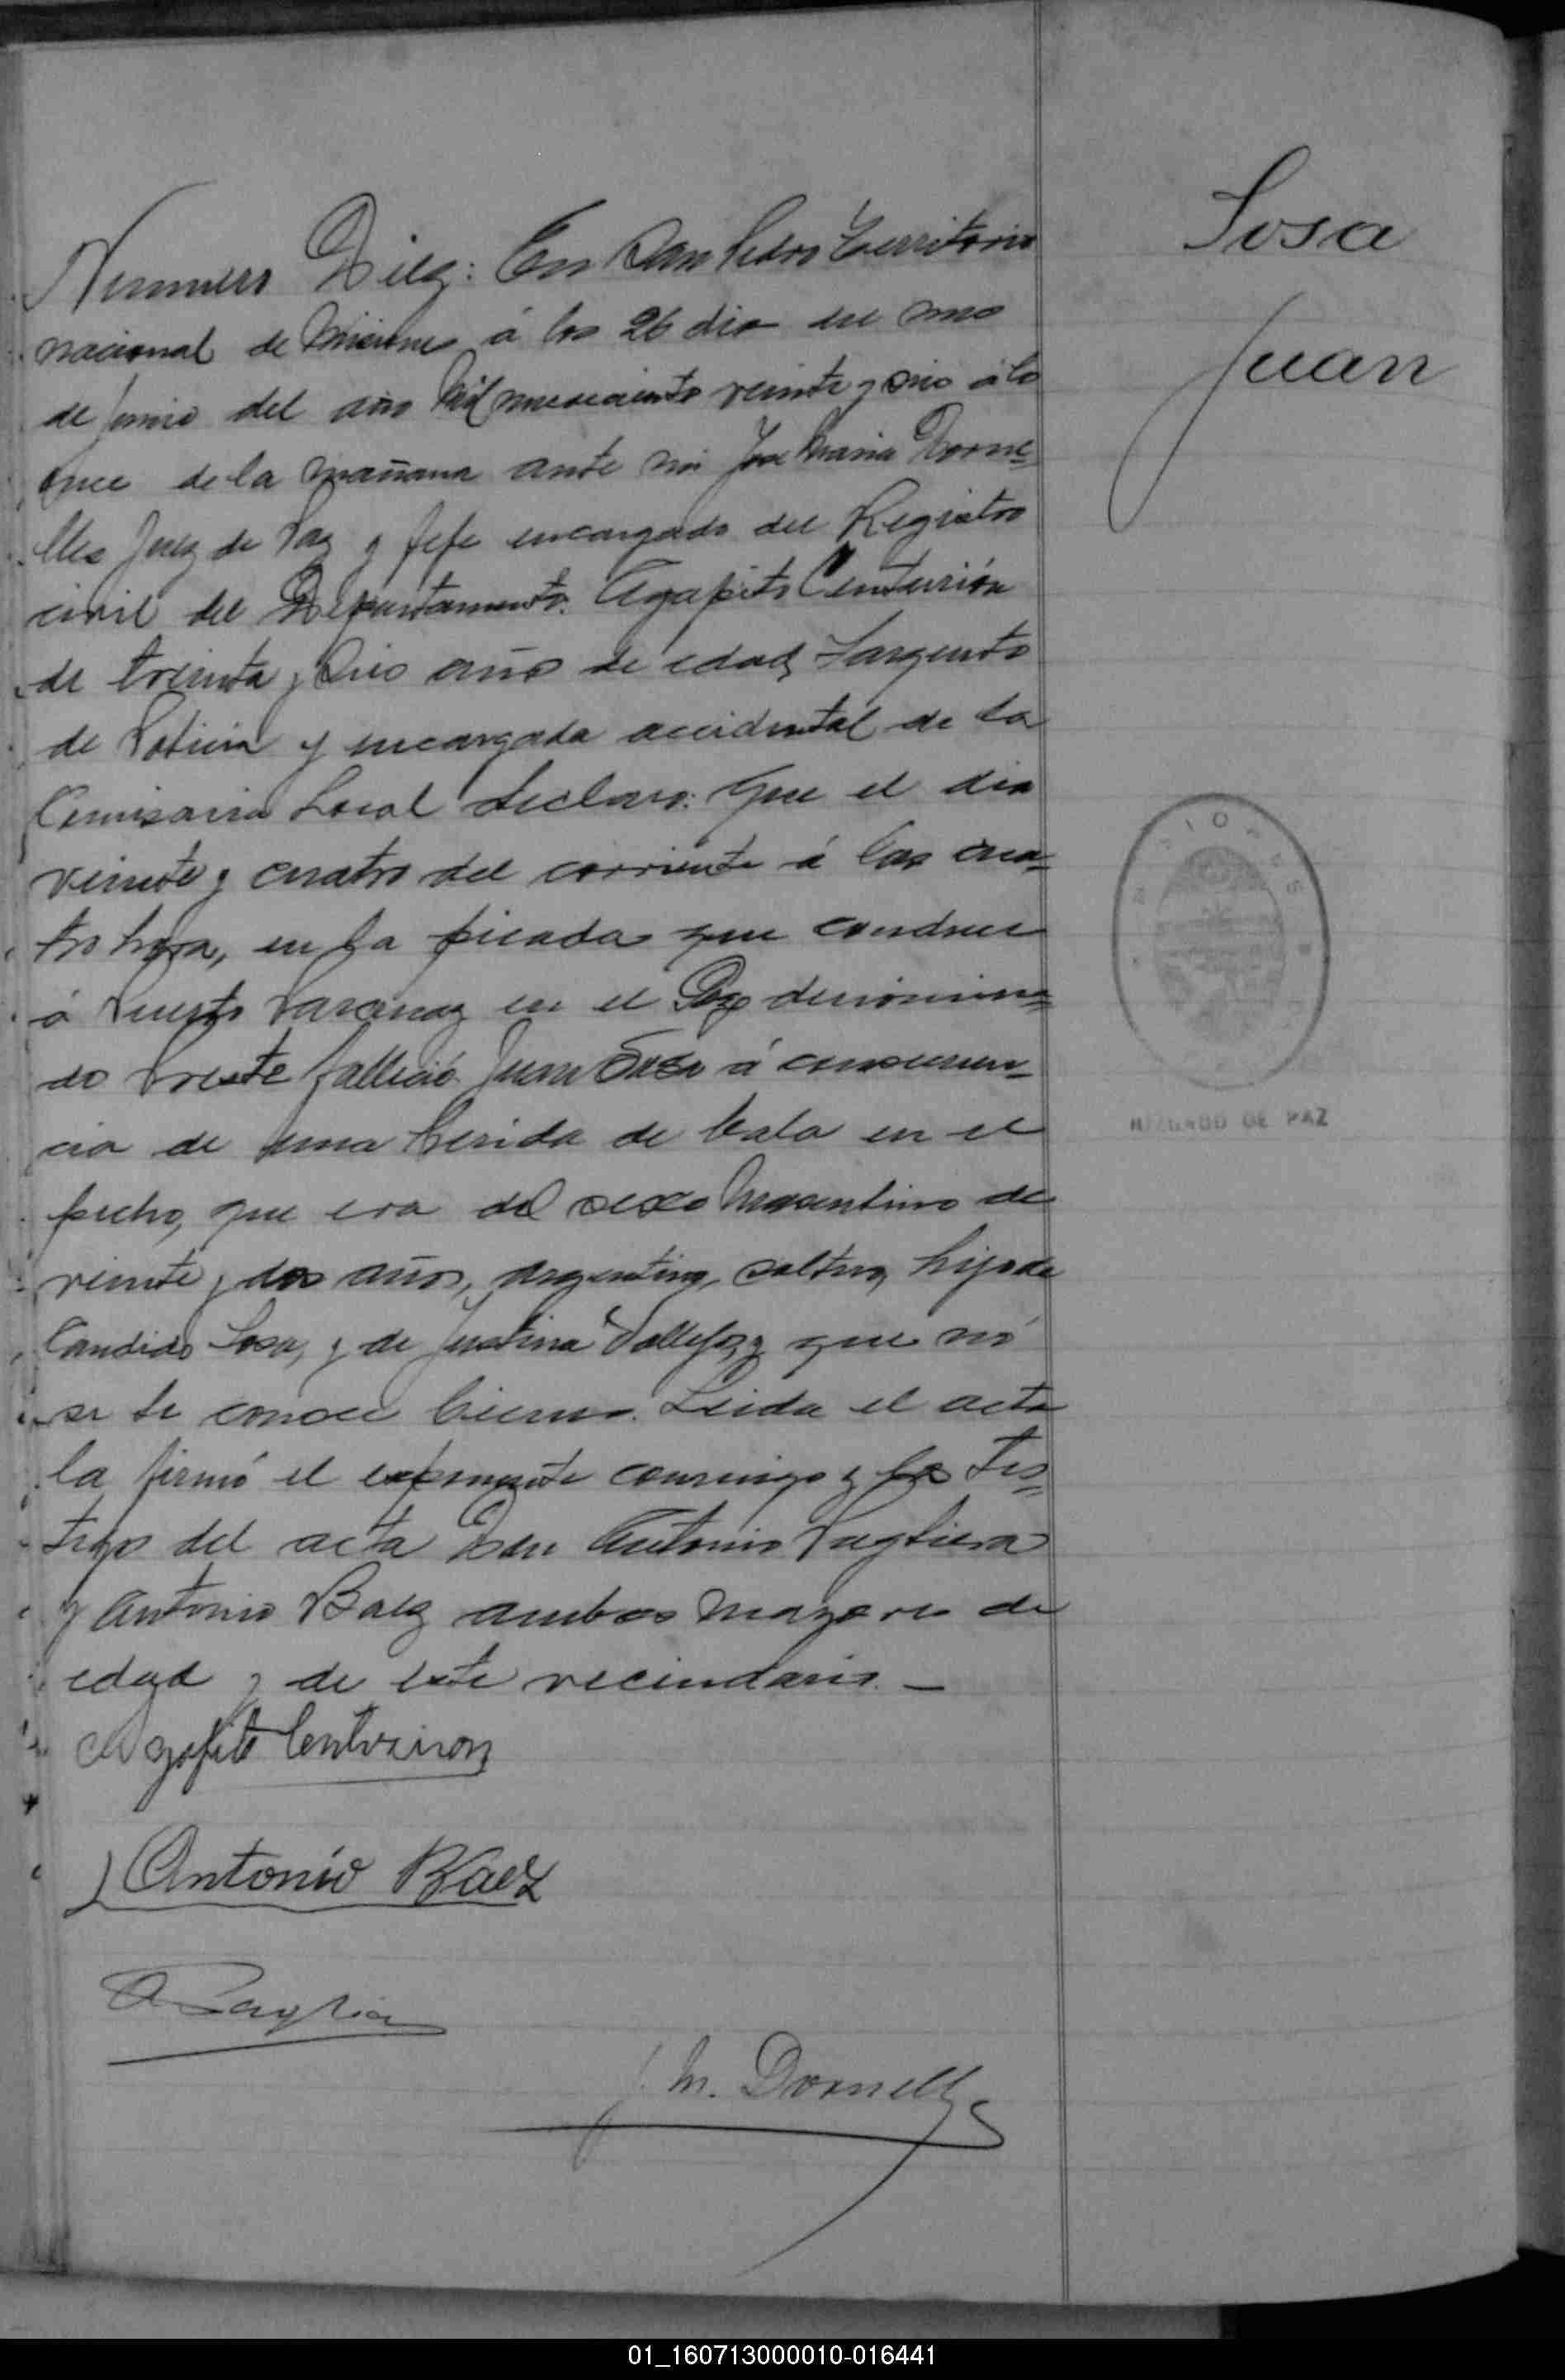 Sosa
Juan
Numero Diez: En San Pedro Territorio
nacional de Misiones á los 26 dia del mes
de Junio del año Mil novecientos veinte y seis á las
once de la mañana ante mi José Maria Dorne-
lles Juez de Paz y Jefe encargado del Registro
civil del Departamento. Agapito Centurión
de treinta y seis años de edad, Sargento
de Policia y encargado accidental de la
Comisaria Local declaro: Que el dia
veinte y cuatro del corriente á las cua-
tro hora, en la picada que conduce
á Puerto Paranay en el denomina-
do fallició Juan Sosa á consecuen-
cia de una herida de bala en el
pecho, que era del sexo Masculino de
veinte y dos años, argentino, soltero, hijo de
Candido Sosa, y de Justina Vallejos, y que nó
se le conoce bienes. Leida el acta
la firmó el exponente conmigo y los Tes-
tigos del acta Don Antonio
y Antonio Baez ambos mayores de
edad y de este vecindario. —
Agapito Centurion
Antonio Baez
J. M. Dornelles
MISIONES
JUZGADO DE PAZ
01_160713000010-016441